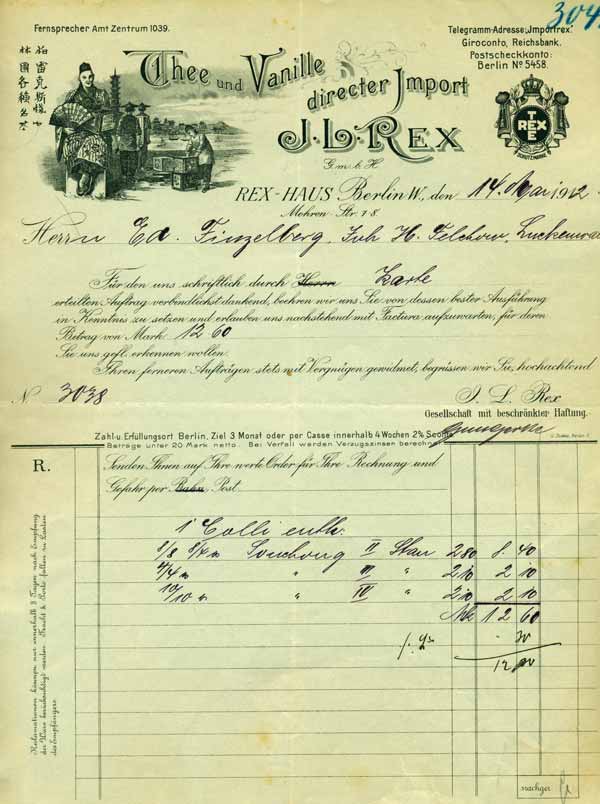 304
Fernsprecher Amt Zentrum 1039.
Telegramm-Adresse: „Importrex“.
Giroconto, Reichsbank.
Postscheckkonto:
Berlin Nº 5458.
Thee und Vanille
directer Import
J. L. REX
G. m. b. H.
T
REX
E
SCHUTZMARKE
REX-HAUS Berlin W., den 14. Mai 1912
Mohren Str. 7-8.
Herrn Ed. Finzelberg, Joh. H. Telchow, Luckenwal
Für den uns schriftlich durch Herrn Karte
erteilten Auftrag verbindlichst dankend, beehren wir uns Sie von dessen bester Ausführung
in Kenntnis zu setzen und erlauben uns nachstehend mit Factura aufzuwarten, für deren
Betrag von Mark 12 60
Sie uns gefl. erkennen wollen.
Ihren ferneren Aufträgen stets mit Vergnügen gewidmet, begrüssen wir Sie, hochachtend
N 3038
J. L. Rex
Gesellschaft mit beschränkter Haftung.
Zahl- u. Erfüllungsort Berlin, Ziel 3 Monat oder per Casse innerhalb 4 Wochen 2% Sconto.
Beträge unter 20 Mark netto. Bei Verfall werden Verzugszinsen berechnet
R.
Senden Ihnen auf Ihre werte Order für Ihre Rechnung und
Gefahr per Bahn, Post.
1 Colli enth.
Souchong II Stau 280 8. 40
" III " 210 2 10
10/10 " IV " 210 2 10
Mk 12 60
30
12
Reklamationen können nur innerhalb 3 Tagen nach Empfang
der Ware berücksichtigt werden. Fracht & Porto fallen zu Lasten
des Empfängers.
nachger.